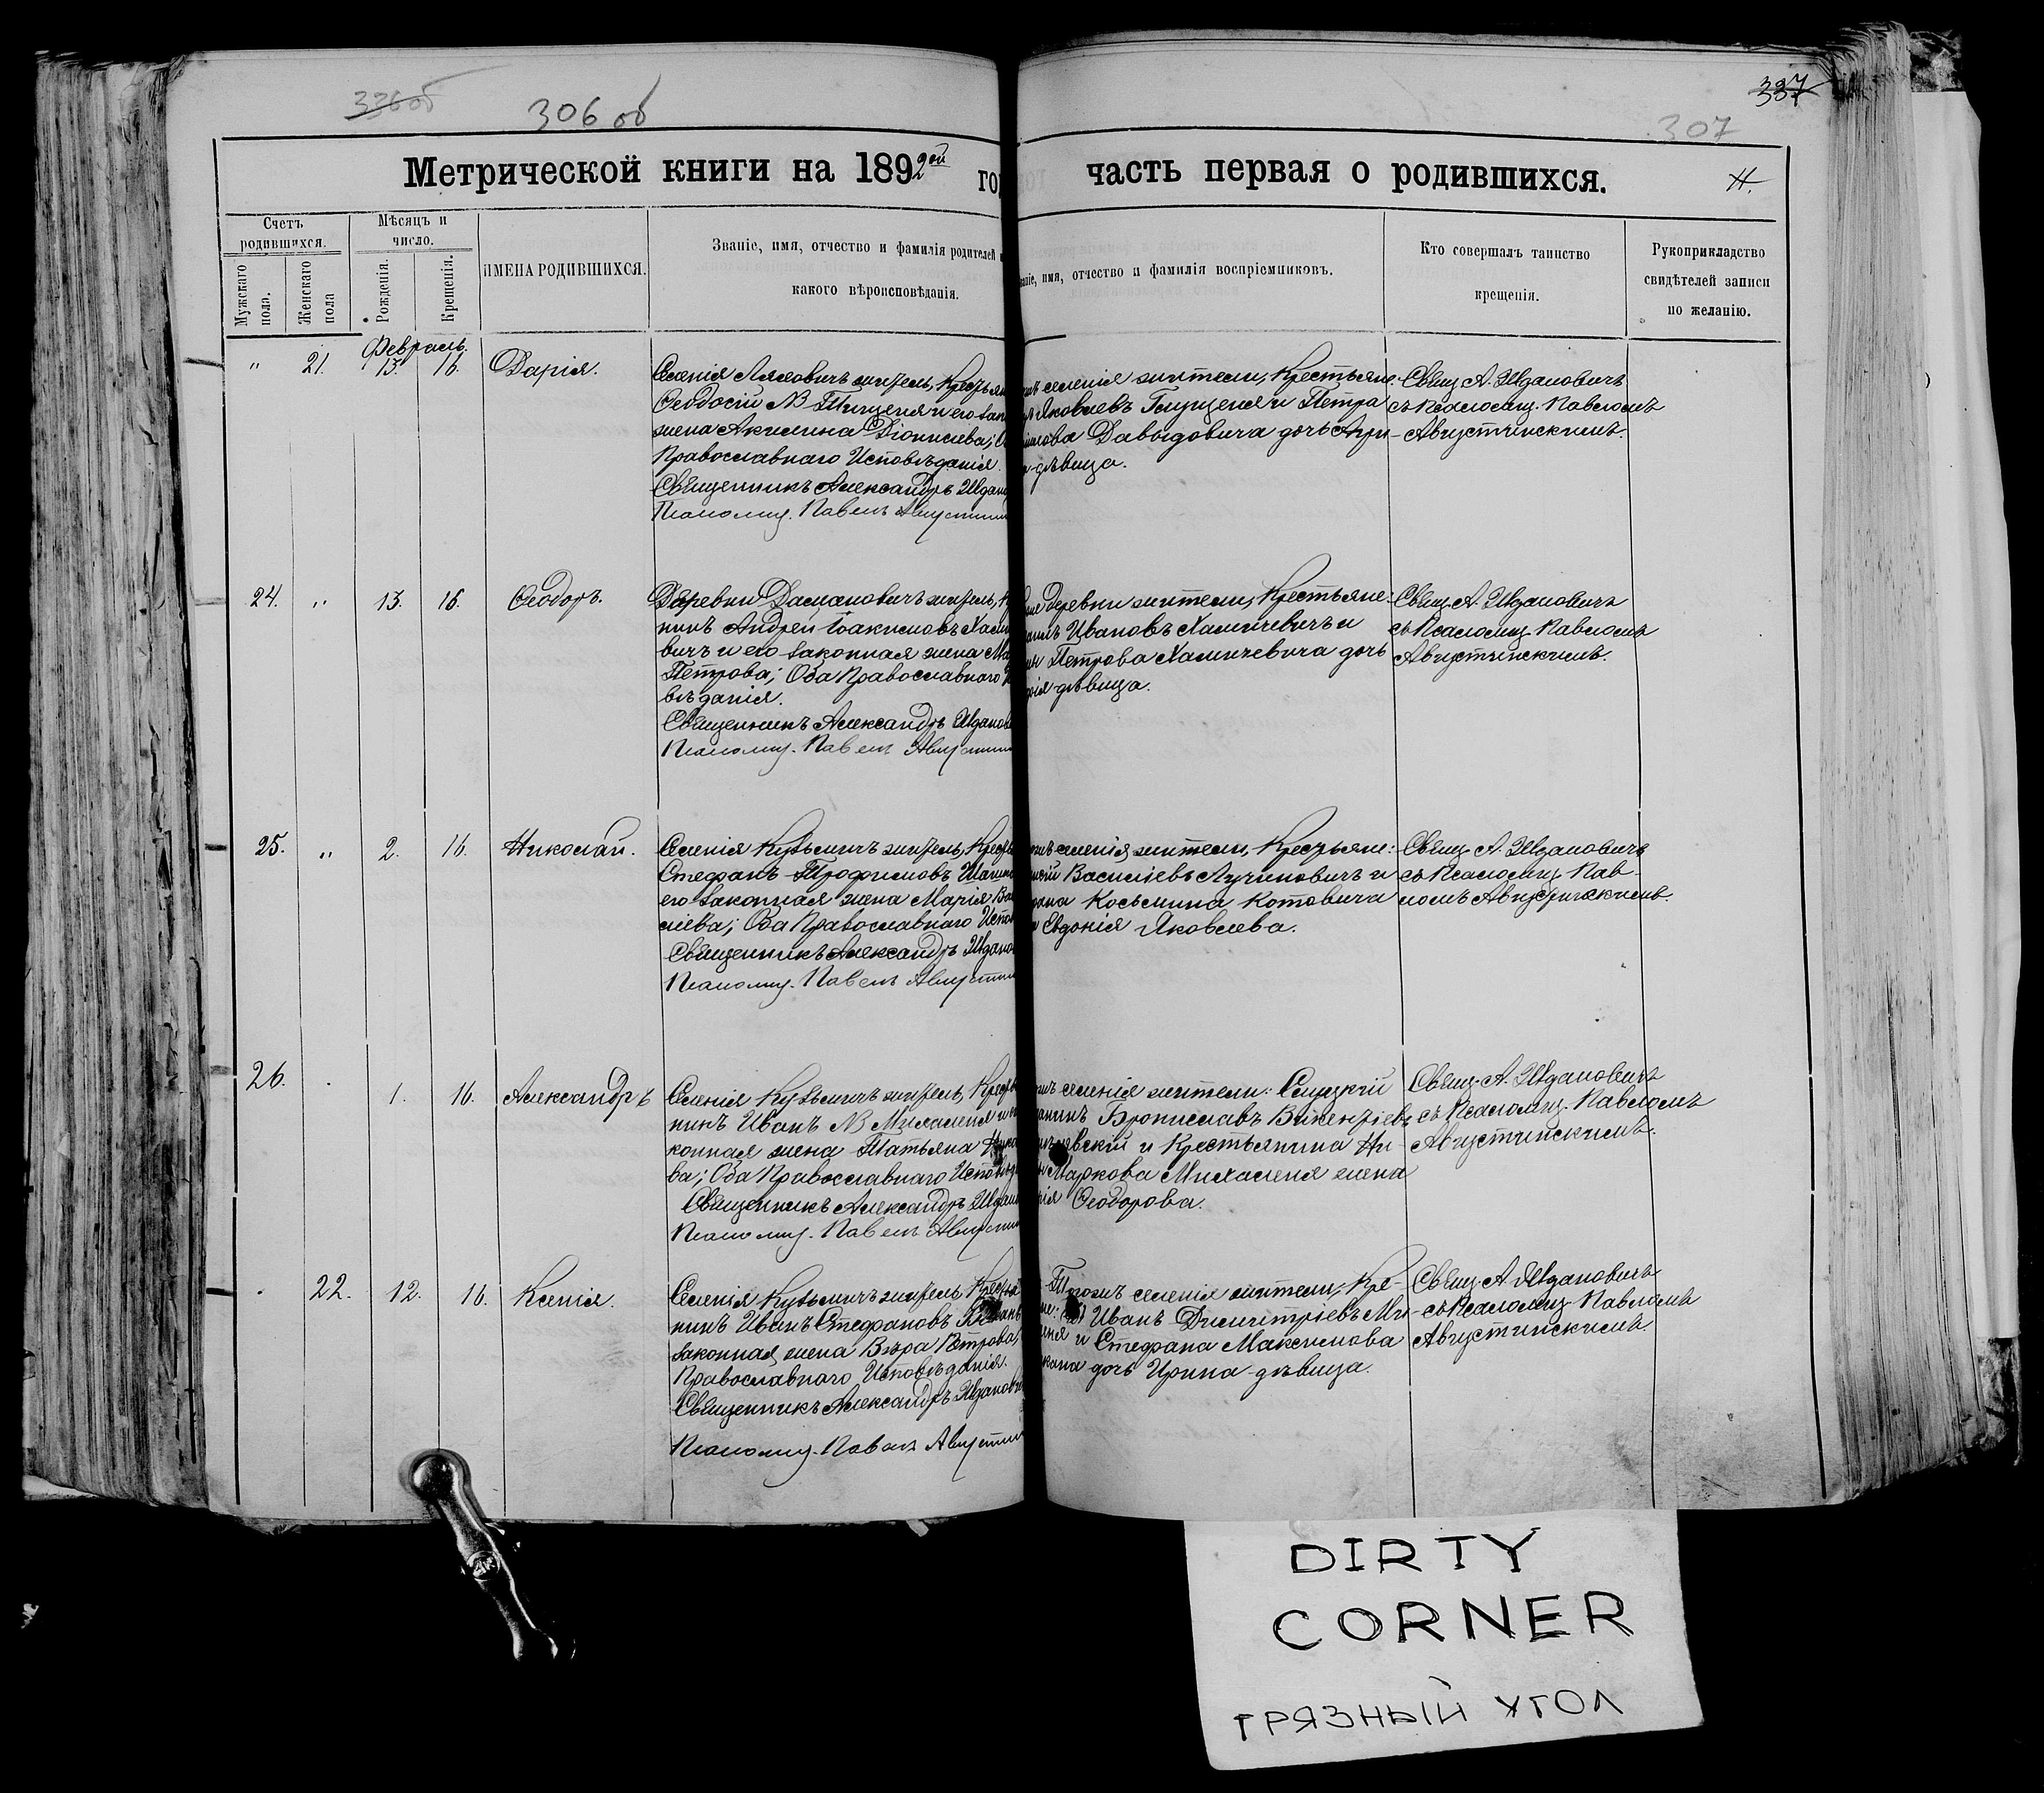 326об
306 об
337
307
Метрической книги на 1892ой го
часть первая о родившихся.
Н.
Счетъ родившихся.
Мужскаго пола.
Женскаго пола
Мѣсяцъ и число.
Рожденія.
Крещенія.
ИМЕНА РОДИВШИХСЯ.
Званіе, имя, отчество и фамилія родителей и
какого вѣроисповѣданія.
имя, отчество и фамилія воспріемниковъ.
Кто совершалъ таинство
крещенія.
Рукоприкладство
свидѣтелей записи
по желанію.
Февраль.
" 21. 13. 16. Дарія.
Селенія Ляховичъ житель,
Ѳеодосій и его
жена Акилина Діонисіева;
Православнаго Исповѣданія.
Священникъ Александръ
Псаломщ. Павелъ
селенія жители, Крестьяне:
Яковлевъ и Петра
Давыдовича дочь
дѣвица.
Свящ. А. Жданович
съ Псаломщ. Павломъ
Августинскимъ.
24. " 13. 16. Ѳеодоръ.
Деревни житель,
никъ Андрей Іоакимовъ
вичъ и его законная жена
Петрова; Оба Православнаго
вѣданія.
Священникъ Александръ
Псаломщ. Павелъ
деревни жители, Крестьяне:
Ивановъ Халичевичъ и
Петрова Халичевича дочь
дѣвица.
Свящ. А. Ждановичъ
съ Псаломщ. Павломъ
Августинскимъ.
25. " 2. 16. Николай.
Селенія Кузьмичъ житель,
Стефанъ Трофимовъ
его законная жена Марія
сиева; Оба Православнаго
Священникъ Александръ
Псаломщ. Павелъ
селенія жители, Крестьяне:
Василіевъ Лучиновичъ и
Косьмина Котовича
Евдокія Яковлева.
Свящ. А. Ждановичъ
съ Псаломщ. Пав-
ломъ Августинскимъ.
26. 1. 16. Александръ
Селенія Кузьмичъ житель,
никъ Иванъ Михаленя
конная жена Татьяна
ва; Оба Православнаго
Священникъ Александръ
Псаломщ. Павелъ
селенія жители: Слуцкій
Брониславъ Викентіевъ
и Крестьянина Ни-
Маркова Михаленя жена
Ѳеодорова.
Свящ. А. Ждановичъ
съ Псаломщ. Павломъ
Августинскимъ.
22. 12. 16. Ксенія.
Селенія Кузьмичъ житель,
никъ Иванъ Стефановъ
законная жена Вѣра Петрова,
Православнаго Исповѣданія.
Священникъ Александръ
Псаломщ. Павелъ
селенія жители, Кре-
Иванъ Димитріевъ Ми-
и Стефана Максимова
дочь Ирина дѣвица.
Свящ. А. Ждановичъ
съ Псаломщ. Павломъ
Августинскимъ.
DIRTY
CORNER
ГРЯЗНЫЙ УГОЛ